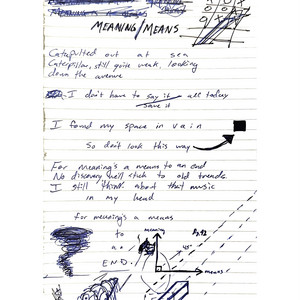 MEANING/MEANS.
Catapulted out at sea
Caterpillar, still quite weak, looking
down the avenue
I don't have to say it all today
save it
I found my space in vain
So don't look this way
For meaning's a means to an end
No discovery we'll stick to old trends
I still think about that music
in my head
for meaning's a means
to
an
END
meaning
45°
means